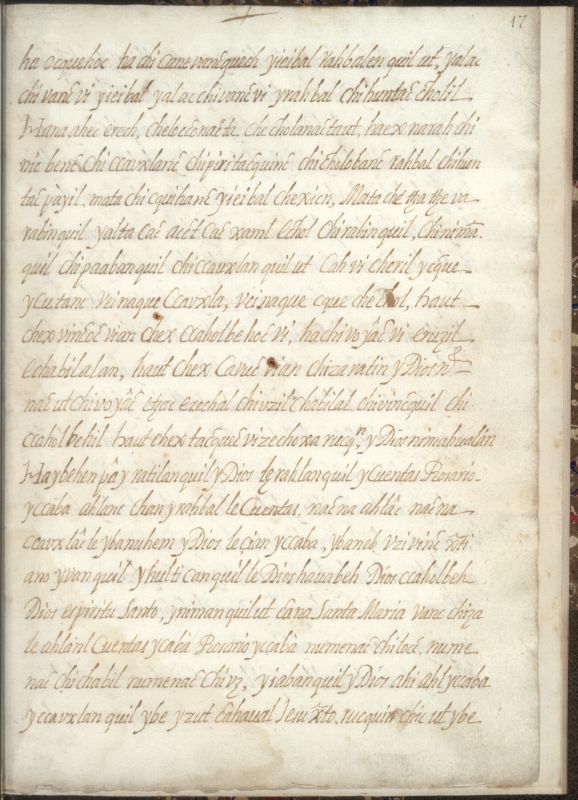 17
ha ocquehoc ha chi cane vancquech yieibal rahbalen quil ut, yalac
chi vanc vi yieibal yalac chi vanc vi yrahbal chi huntac cholil
Mana ahec erech, cheloconacta. che cholanactaut, haex narah chi
nic benc chi ccauxlanc chi piritacquinc chi cholobanc rahbal chihun
tac payil. mata chi cquihanc yieibal chexicn, Mata che tha the va
rabinquil yalta cac acct cac xaml echol chi rabinquil, chi nima
quil chi paabanquil chi ccauxlan quil ut cah vi cheril ycque
y cutanc veinaque ccauxla, veinaque cque che chol, haut
chex vincoc vian chex ccaholbehoc vi, ha chi voyac vi cruzil
echabilalan, haut chex canuc vian chizaratin y Dios
nac ut chi voyac etzac erechal chi vzil chabilal chi vincquil chi
ccaholbehil haut chex tacquec vi zechoxa rucq y Dios nimahualan
Maybehen pa y ratilanquil y Dios le rahlanquil y Cuentas Rosario
yccaba ahlanc chan yrahbal le Cuentas, nac na ahlac nac na
ccauxlac le ybanuhem y Dios le cian yccaba, ybaneb, vzi vinc xpi
ano yvanquil yhulticanquil le Dios hauabeh Dios ccaholbeh
Dios espiritu Santo, yniman quil ut cana Santa Maria vanc chiza
le ahlanl Cuentas ycaba Rosario yccaba numenac chi loc, nume
nac chi chabil numenac chi vz, yiabanquil y Dios ahi ahl yccaba
yccauxlan quil ybe y zut cahaual Jesu xpto, rucquin chic ut ybe